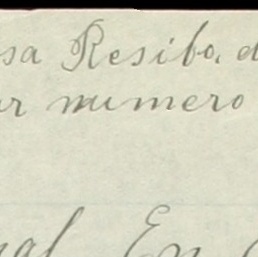 sa Resibo, d
ar numero
al En